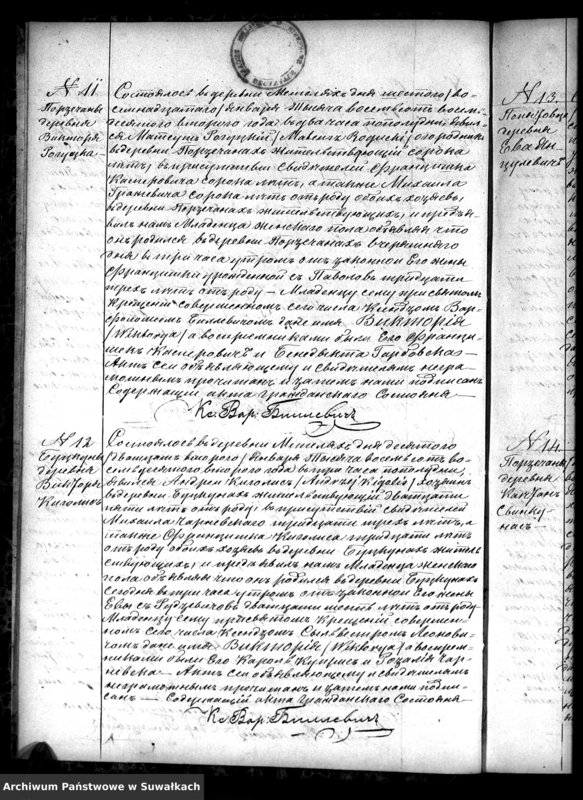 № 11
Порзечаны
деревня
Викторя
Рогуцка
Состоялось в деревни Метелях дня шестого / во-
семнадцатаго / января тысяча восемьсот восемь-
десятого второго года в два часа пополудни. явил-
ся Матеуш Рогуцкий / Mateusz
в деревни Порзечанах жительствующий сорока
лет, в присутствии свидетелей Францишка
Каспровича сорока лет, а также Михаила
сорока лет от роду обоих хозяев
в деревни Порзечанах жительствующих, и предъя-
вил нам младенца женского пола объявляя что
он родился в деревни Порзечанах вчерашняго
дня в три часа утром от законной его жены
Францишки урожденной с Паволов тридцати
трех лет от роду — Младенцу сему при святом
крещении совершенном сего числа Ксендзом Вар-
фоломеем Биллевичом дано имя Виктория
/ Wiktorya / а восприемниками были его Францы-
шек Касперович и Бенедикта Гарбовска —
Акт сей объявляющему и свидетелям негра-
мотным прочитан и затем нами подписан
Содержащий акта гражданского состояния —
Кс. Вар: Биллевич
№ 12
Буркуны
деревня
Виктория
Киголис
Состоялось в деревни Метелях дня десятого
/ двадцать второго / января тысяча восемьсот во-
семьдесятого второго года в три часа пополудни,
явился Андрей Киголис / Andrzej / хозяин
в деревни Буркунах жительствующий двадцати
пяти лет от роду, в присутствии свидетелей
Михаила Чарневского тридцати трех лет, а
также Францишка Киголиса тридцати лет
от роду обоих хозяев в деревни Буркунах житель-
ствующих, и предъявил нам младенца женского
пола объявляя что он родился в деревни Буркунах
сегодня в три часа утром от законной его жены
Евы с Рудзевичов двадцати шесть лет от роду
Младенцу сему при святом крещении совершен-
ном сего числа Ксендзом Сыльвестром Леонови-
чом дано имя Виктория / Wiktorya / а восприем-
никами были его Кароль и Розалия Чар-
невска — Акт сей объявляющему и свидетелям
неграмотным прочитан и затем нами подпи-
сан — Содержащий акта гражданского состояния —
Кс. Вар: Биллевич
№ 13.
деревня
Ева Ян-
цулевич
№ 14.
Порзечаны
деревня
Каетан
Свинку-
нас
Archiwum Państwowe w Suwałkach